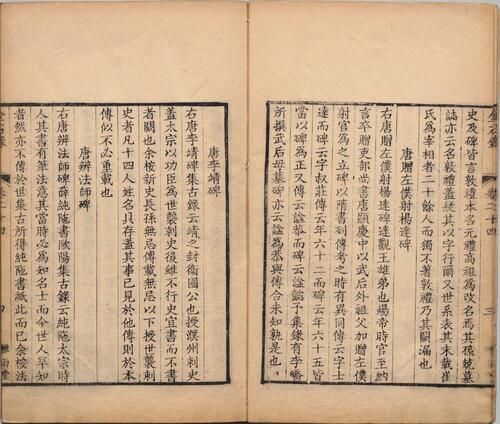 金石錄 卷二十四 三
史及碑皆言敦禮本名元禮高祖爲改焉其孫兢墓
誌亦云名敦禮蓋嘗以字行爾又世系表其末載崔
氏爲宰相者二十餘人而獨不著敦禮乃其闕漏也
唐贈左僕射楊達碑
右唐贈左僕射楊達碑達觀王雄弟也煬帝時官至納
言卒贈吏部尚書唐顯慶中以武后外祖父加贈左僕
射官爲之立碑以隋書列傳考之時有異同傳云字士
達而碑云字叔莊傳云年六十二而碑云年六十五皆
當以碑爲正又傳云謚恭而碑云謚懿予集錄有李嶠
所撰武后母墓碑亦云謚爲恭與傳合未知孰是也
唐李靖碑
右唐李靖碑集古錄云靖之封衛國公也授濮州刺史
蓋太宗以功臣爲世襲刺史後雖不行史宜書而不書
者闕也余檢新史長孫無忌傳載無忌以下授世襲刺
史者凡十四人姓名具存蓋其事已見於他傳則於本
傳似不必重載也
唐辨法師碑
右唐辨法師碑薛純陁書歐陽集古錄云純陁太宗時
人其書有筆法意其當時必爲知名士而今世人罕知
者然亦不傳於世集古所得純陁書祗此而已余按法
金石錄 卷二十四 四 雅雨堂